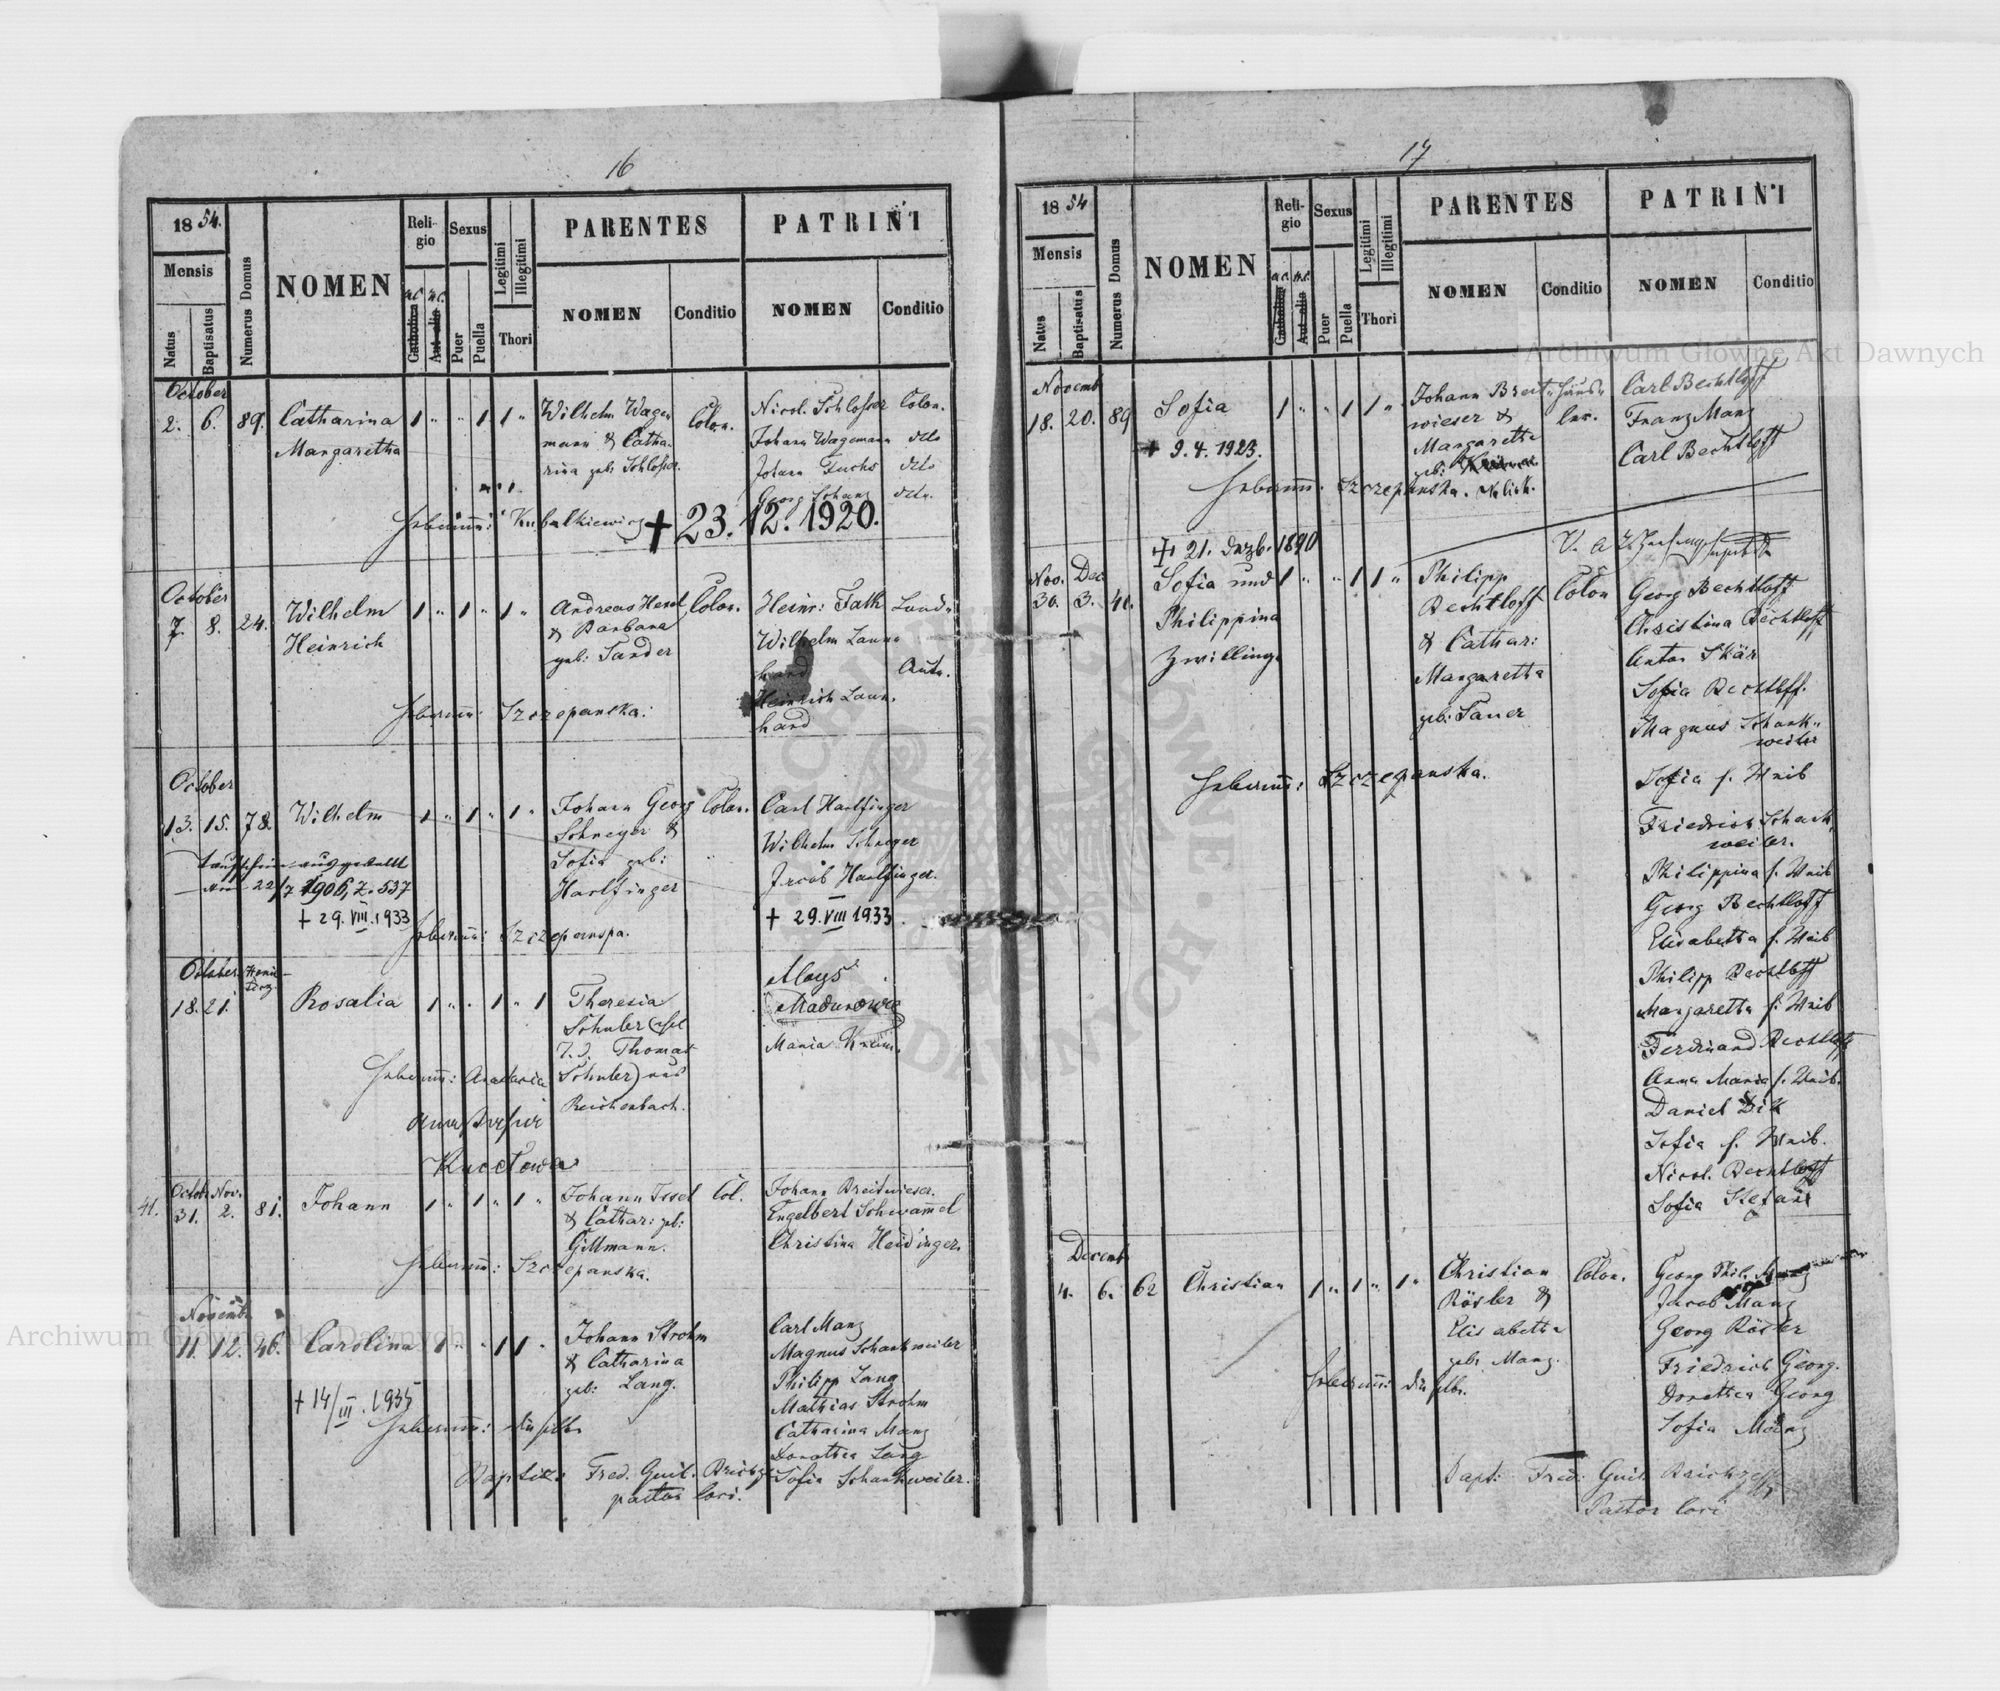 16
1854.
Mensis
Natus
Baptisatus
Numerus Domus
NOMEN
Religio
a.c.
h.c.
Catholica
Aut alia
Sexus
Puer
Puella
Legitimi
Illegitimi
Thori
PARENTES
NOMEN
Conditio
PATRINI
NOMEN
Conditio
October
2. 6. 89. Catharina Margaretha
1 " " 1 1 "
Wilhelm Wagen
mann & Catha-
rina geb. Schlosser.
Colon.
Nicol. Schlosser Colon.
Johann Wagemann dto
Johann Fuchs dto
Georg Schanz dto.
Hebamm: Kubalkiewicz
+ 23. 12. 1920.
October
7. 8. 24. Wilhelm
Heinrich
1 " 1 " 1 "
Andreas Hessel
& Barbara
geb: Sander
Colon.
Heinr: Fath
Wilhelm Laun
hard
Heinrich Laun,
hard
Hebamm: Szczepanska:
October
13. 15. 78. Wilhelm
1 " 1 " 1 "
Johann Georg
Schreyer &
Sofia geb:
Harlfinger
Colon.
Carl Harlfinger
Wilhelm Schreyer
Jacob Harlfinger.
Taufschein ausgestellt
22/7 1906, Z. 537
+ 29. VIII. 1933
+ 29. VIII 1933.
Hebamm: Szczepanspa.
October
18. 21. Rosalia
1 " " 1 " 1
Theresia
Schuler
T. d. Thomas
Schuler) aus
Reichenbach.
Aloys
Madurowie
Maria
Hebamm:
October Nov.
41. 31. 2. 81. Johann
1 " 1 " 1 "
Johann Issel
& Cathar: geb:
Gillmann.
Col.
Johann Breitwieser.
Engelbert Schwammel
Christina Heidinger.
Hebamm: Szczepanska.
Novemb.
11. 12. 46. Carolina
1 " " 1 1 "
Johann Strohm
& Catharina
geb: Lang.
Carl Manz
Magnus Schankweiler
Philipp Lang
Mathias Strohm
Catharina Manz
Dorothea Lang
Sofia Schankweiler.
+ 14/III. 1935
Hebamm: dieselbe
Baptiz: Fred. Guil.
pastor loci.
17
1854
Mensis
Natus
Baptisatus
Numerus Domus
NOMEN
Religio
a.c.
h.c.
Catholica
Aut alia
Sexus
Puer
Puella
Legitimi
Illegitimi
Thori
PARENTES
NOMEN
Conditio
PATRINI
NOMEN
Conditio
Novemb
18. 20. 89 Sofia
1 " " 1 1 "
Johann Breit
wieser &
Margaretha
geb:
Häus-
ler.
Carl Bechtloff
Franz Manz
Carl Bechtloff
+ 9. 4. 1923.
Hebamm: Szczepanska.
+ 21. Dezb. 1890
Nov. Dec.
30. 3. 41. Sofia und
Philippina
Zwillinge
1 " " 1 1 "
Philipp
Bechtloff
& Cathar:
Margaretha
geb: Sauer
Colon
Georg Bechtloff
Christina Bechtloff
Anton Skär
Sofia Bechtloff.
Magnus Schank-
weiler
Sofia s. Weib
Friedrich Schank,
weiler.
Philippina s. Weib
Georg Bechtloff
Elisabetha s. Weib
Philipp Bechtloff
Margaretha s. Weib
Ferdinand Bechtloff
Anna Maria s. Weib.
Daniel Dik
Sofia s. Weib.
Nicol. Bechtloff
Sofia Stefani
Hebamm: Szczepanska.
Decemb
4. 6. 62 Christian
1 " 1 " 1 "
Christian
Rösler &
Elisabetha
geb. Manz.
Colon.
Georg Phil. Manz
Jacob Manz
Georg Rösler
Friedrich Georg.
Dorothea Georg
Sofia Manz
Hebamm: dieselbe.
Bapt: Fred. Guil.
Pastor loci
Archiwum Główne Akt Dawnych
Archiwum Główne Akt Dawnych